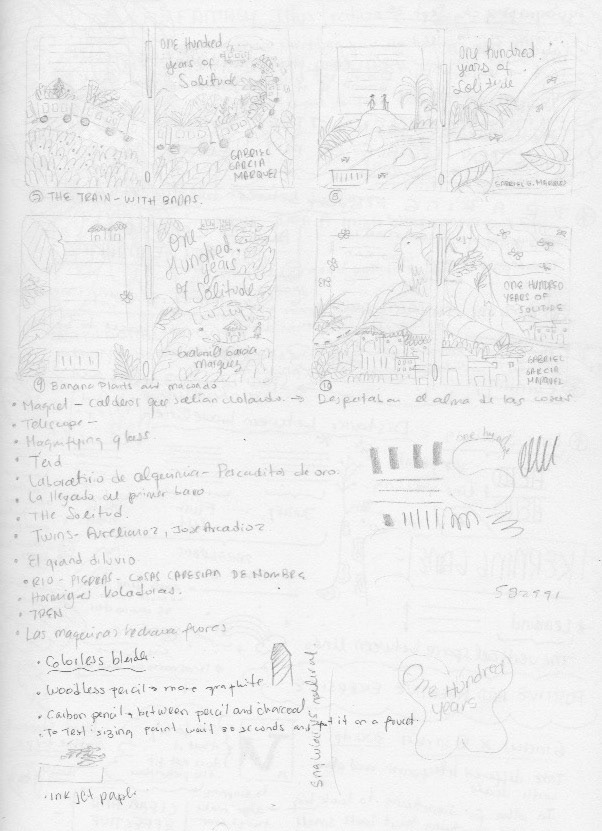 ONE HUNDRED
years of
Solitude
GABRIEL
GARCIA
MARQUEZ
THE TRAIN - WITH
one hundred
years of
Solitude
GABRIEL G. MARQUEZ
One
Hundred
years
of Solitude
Gabriel Garcia
Marquez
ONE HUNDRED
YEARS OF
SOLITUDE
GABRIEL
GARCIA
MARQUEZ
9 Banana Plants and macondo
10
• Magnet - Calderos que salian volando. → Despertaban el alma de las cosas
• Telescope -
• Magnifying glass.
• Laboratorio de alquimia - Pescaditos de oro.
• La llegada del primer
• THE Solitud.
• Twins - Aureliano 2, Jose Arcadio 2
• El grand diluvio
• RIO - PIEDRAS - COSAS CARESIAN DE NOMBRE
• Hormigas Voladoras.
• TREN
• Las maquinas
one hund
582991
• Colorless blender
• Woodless pencil → more graphite
• Carbon pencil → between pencil and charcoal.
• To Test sizing paint wait 30 seconds and put it on a
• Ink jet
One Hundred
years